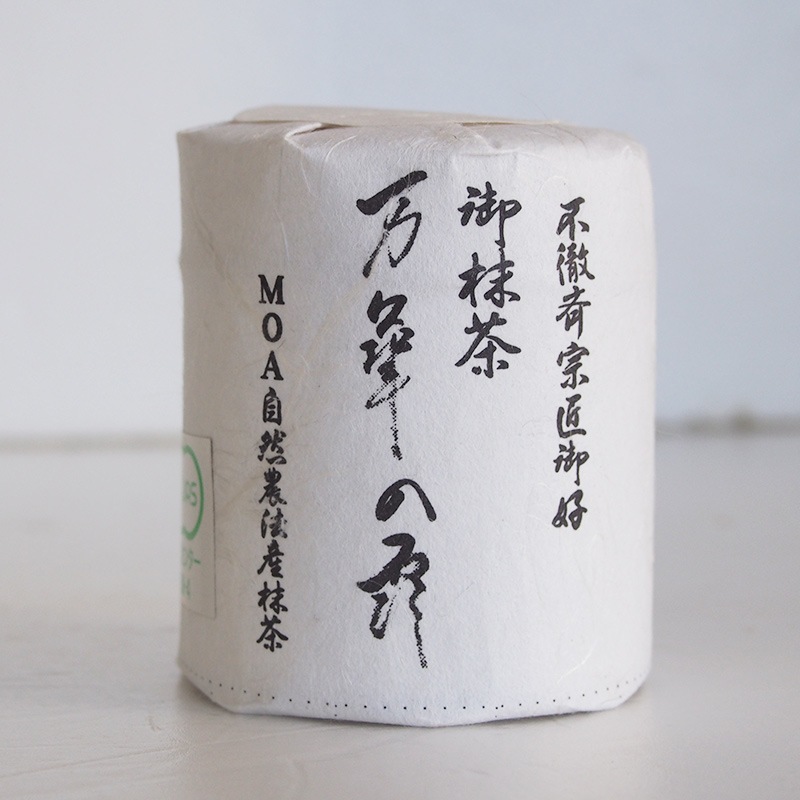 不徹斎宗匠御好
御抹茶
の露
MOA自然農法産抹茶